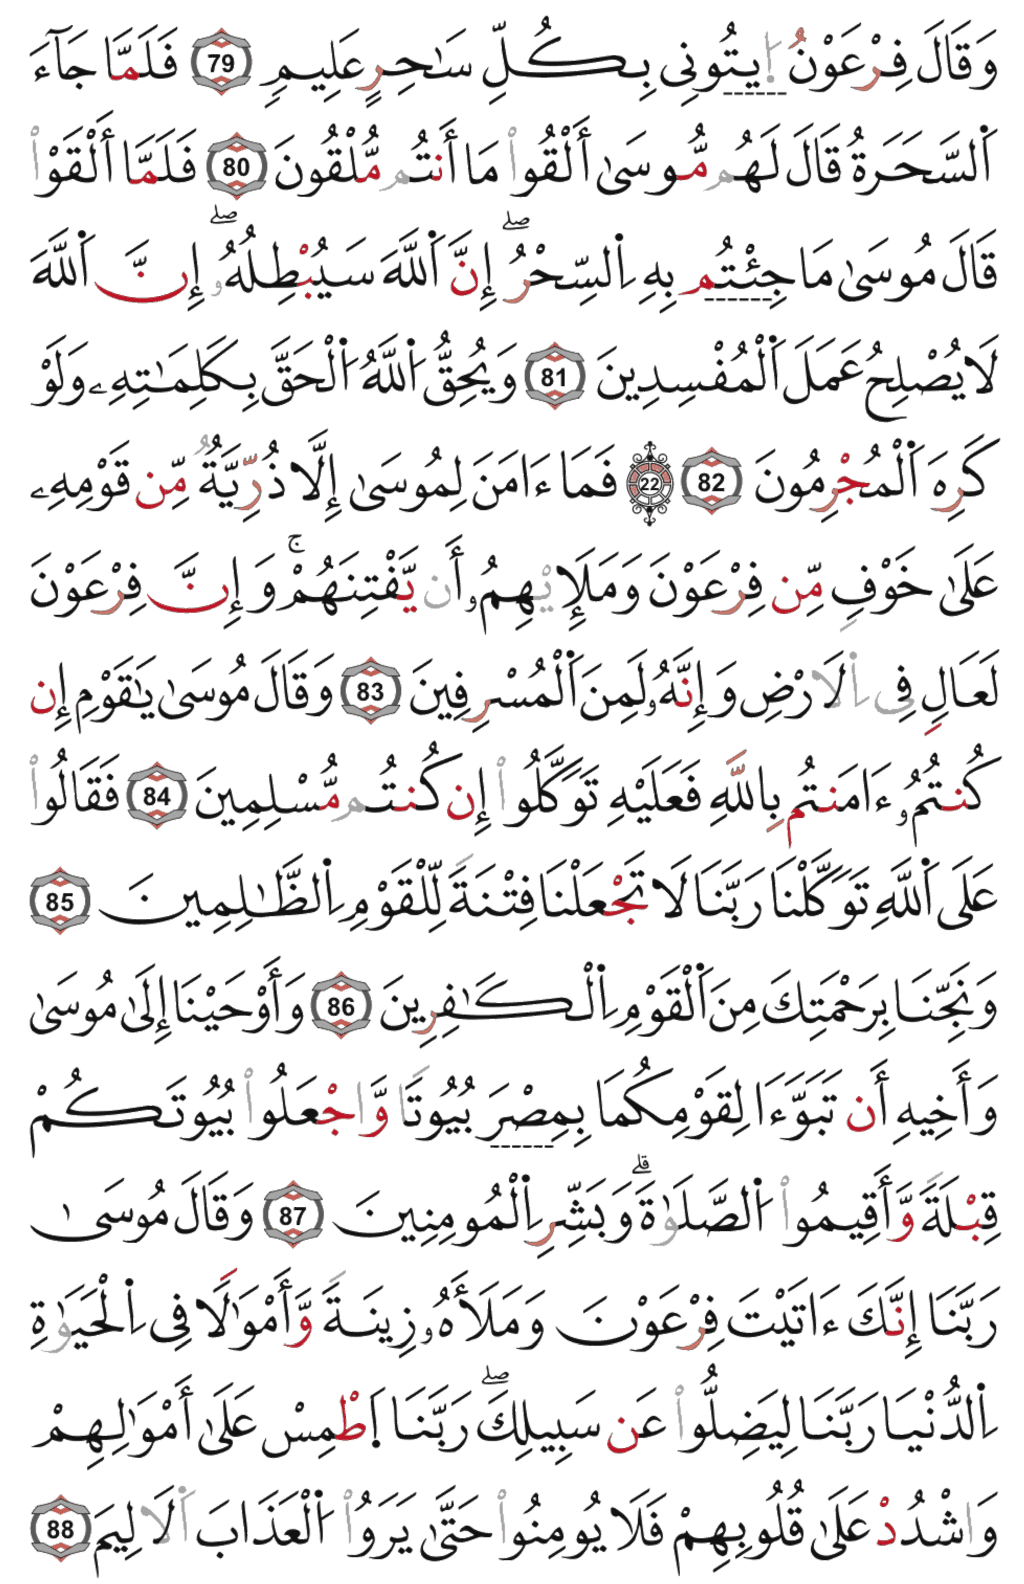 وَقَالَ فِرْعَوْنُ اِ۪يتُونِي بِكُلِّ سَٰحِرٍ عَلِيمٖۖ 79 فَلَمَّا جَآءَ
اَ۬لسَّحَرَةُ قَالَ لَهُم مُّوسَىٰٓ أَلْقُوا۟ مَا أَنتُم مُّلْقُونَ 80 فَلَمَّا أَلْقَوْا۟
قَالَ مُوسَىٰ مَا جِئْتُم بِهِ اِ۬لسِّحْرُ ۖ إِنَّ اَ۬للَّهَ سَيُبْطِلُهُۥ ۖ إِنَّ اَ۬للَّهَ
لَا يُصْلِحُ عَمَلَ اَ۬لْمُفْسِدِينَ 81 وَيُحِقُّ اُ۬للَّهُ اُ۬لْحَقَّ بِكَلِمَٰتِهِۦ وَلَوْ
كَرِهَ اَ۬لْمُجْرِمُونَ 82 22 فَمَا ءَامَنَ لِمُوسَىٰ إِلَّا ذُرِّيَّةٌ مِّن قَوْمِهِۦ
عَلَىٰ خَوْفٍ مِّن فِرْعَوْنَ وَمَلَإِي۟هِمُۥ أَن يَّفْتِنَهُمْ ۚ وَإِنَّ فِرْعَوْنَ
لَعَالٍ فِي اِ۬لَارْضِ وَإِنَّهُۥ لَمِنَ اَ۬لْمُسْرِفِينَ 83 وَقَالَ مُوسَىٰ يَٰقَوْمِ إِن
كُنتُمُۥ ءَامَنتُم بِاللَّهِ فَعَلَيْهِ تَوَكَّلُوا۟ إِن كُنتُم مُّسْلِمِينَ 84 فَقَالُوا۟
عَلَى اَ۬للَّهِ تَوَكَّلْنَا رَبَّنَا لَا تَجْعَلْنَا فِتْنَةً لِّلْقَوْمِ اِ۬لظَّٰلِمِينَ 85
وَنَجِّنَا بِرَحْمَتِكَ مِنَ اَ۬لْقَوْمِ اِ۬لْكَٰفِرِينَ 86 وَأَوْحَيْنَا إِلَىٰ مُوسَىٰ
وَأَخِيهِ أَن تَبَوَّءَا لِقَوْمِكُمَا بِمِصْرَ بُيُوتًا وَّاجْعَلُوا۟ بُيُوتَكُمْ
قِبْلَةً وَّأَقِيمُوا۟ اُ۬لصَّلَوٰةَ ۗ وَبَشِّرِ اِ۬لْمُومِنِينَ 87 وَقَالَ مُوسَىٰ
رَبَّنَا إِنَّكَ ءَاتَيْتَ فِرْعَوْنَ وَمَلَأَهُۥ زِينَةً وَّأَمْوَٰلًا فِي اِ۬لْحَيَوٰةِ
اِ۬لدُّنْيَا رَبَّنَا لِيَضِلُّوا۟ عَن سَبِيلِكَ ۖ رَبَّنَا اَ۪طْمِسْ عَلَىٰ أَمْوَٰلِهِمْ
وَاشْدُدْ عَلَىٰ قُلُوبِهِمْ فَلَا يُومِنُوا۟ حَتَّىٰ يَرَوُا۟ اُ۬لْعَذَابَ اَ۬لَالِيمَ 88